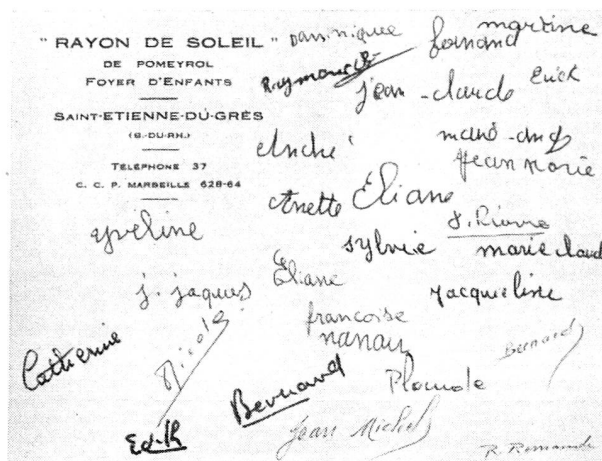 " RAYON DE SOLEIL "
DE POMEYROL
FOYER D'ENFANTS
SAINT-ETIENNE-DU-GRÈS
(B.-DU-RH.)
TÉLÉPHONE 37
C. C. P. MARSEILLE 628-64
Dominique
martine
fernand
Raymonde
jean-claude
Erick
André
Jean Marie
Anette
Eliane
yveline
J. Pierre
sylvie
marie claud
j. jaques
Éliane
Jacqueline
francoise
nanou
Catherine
Nicole
Bernard
Bernard
Edith
Jean Michel